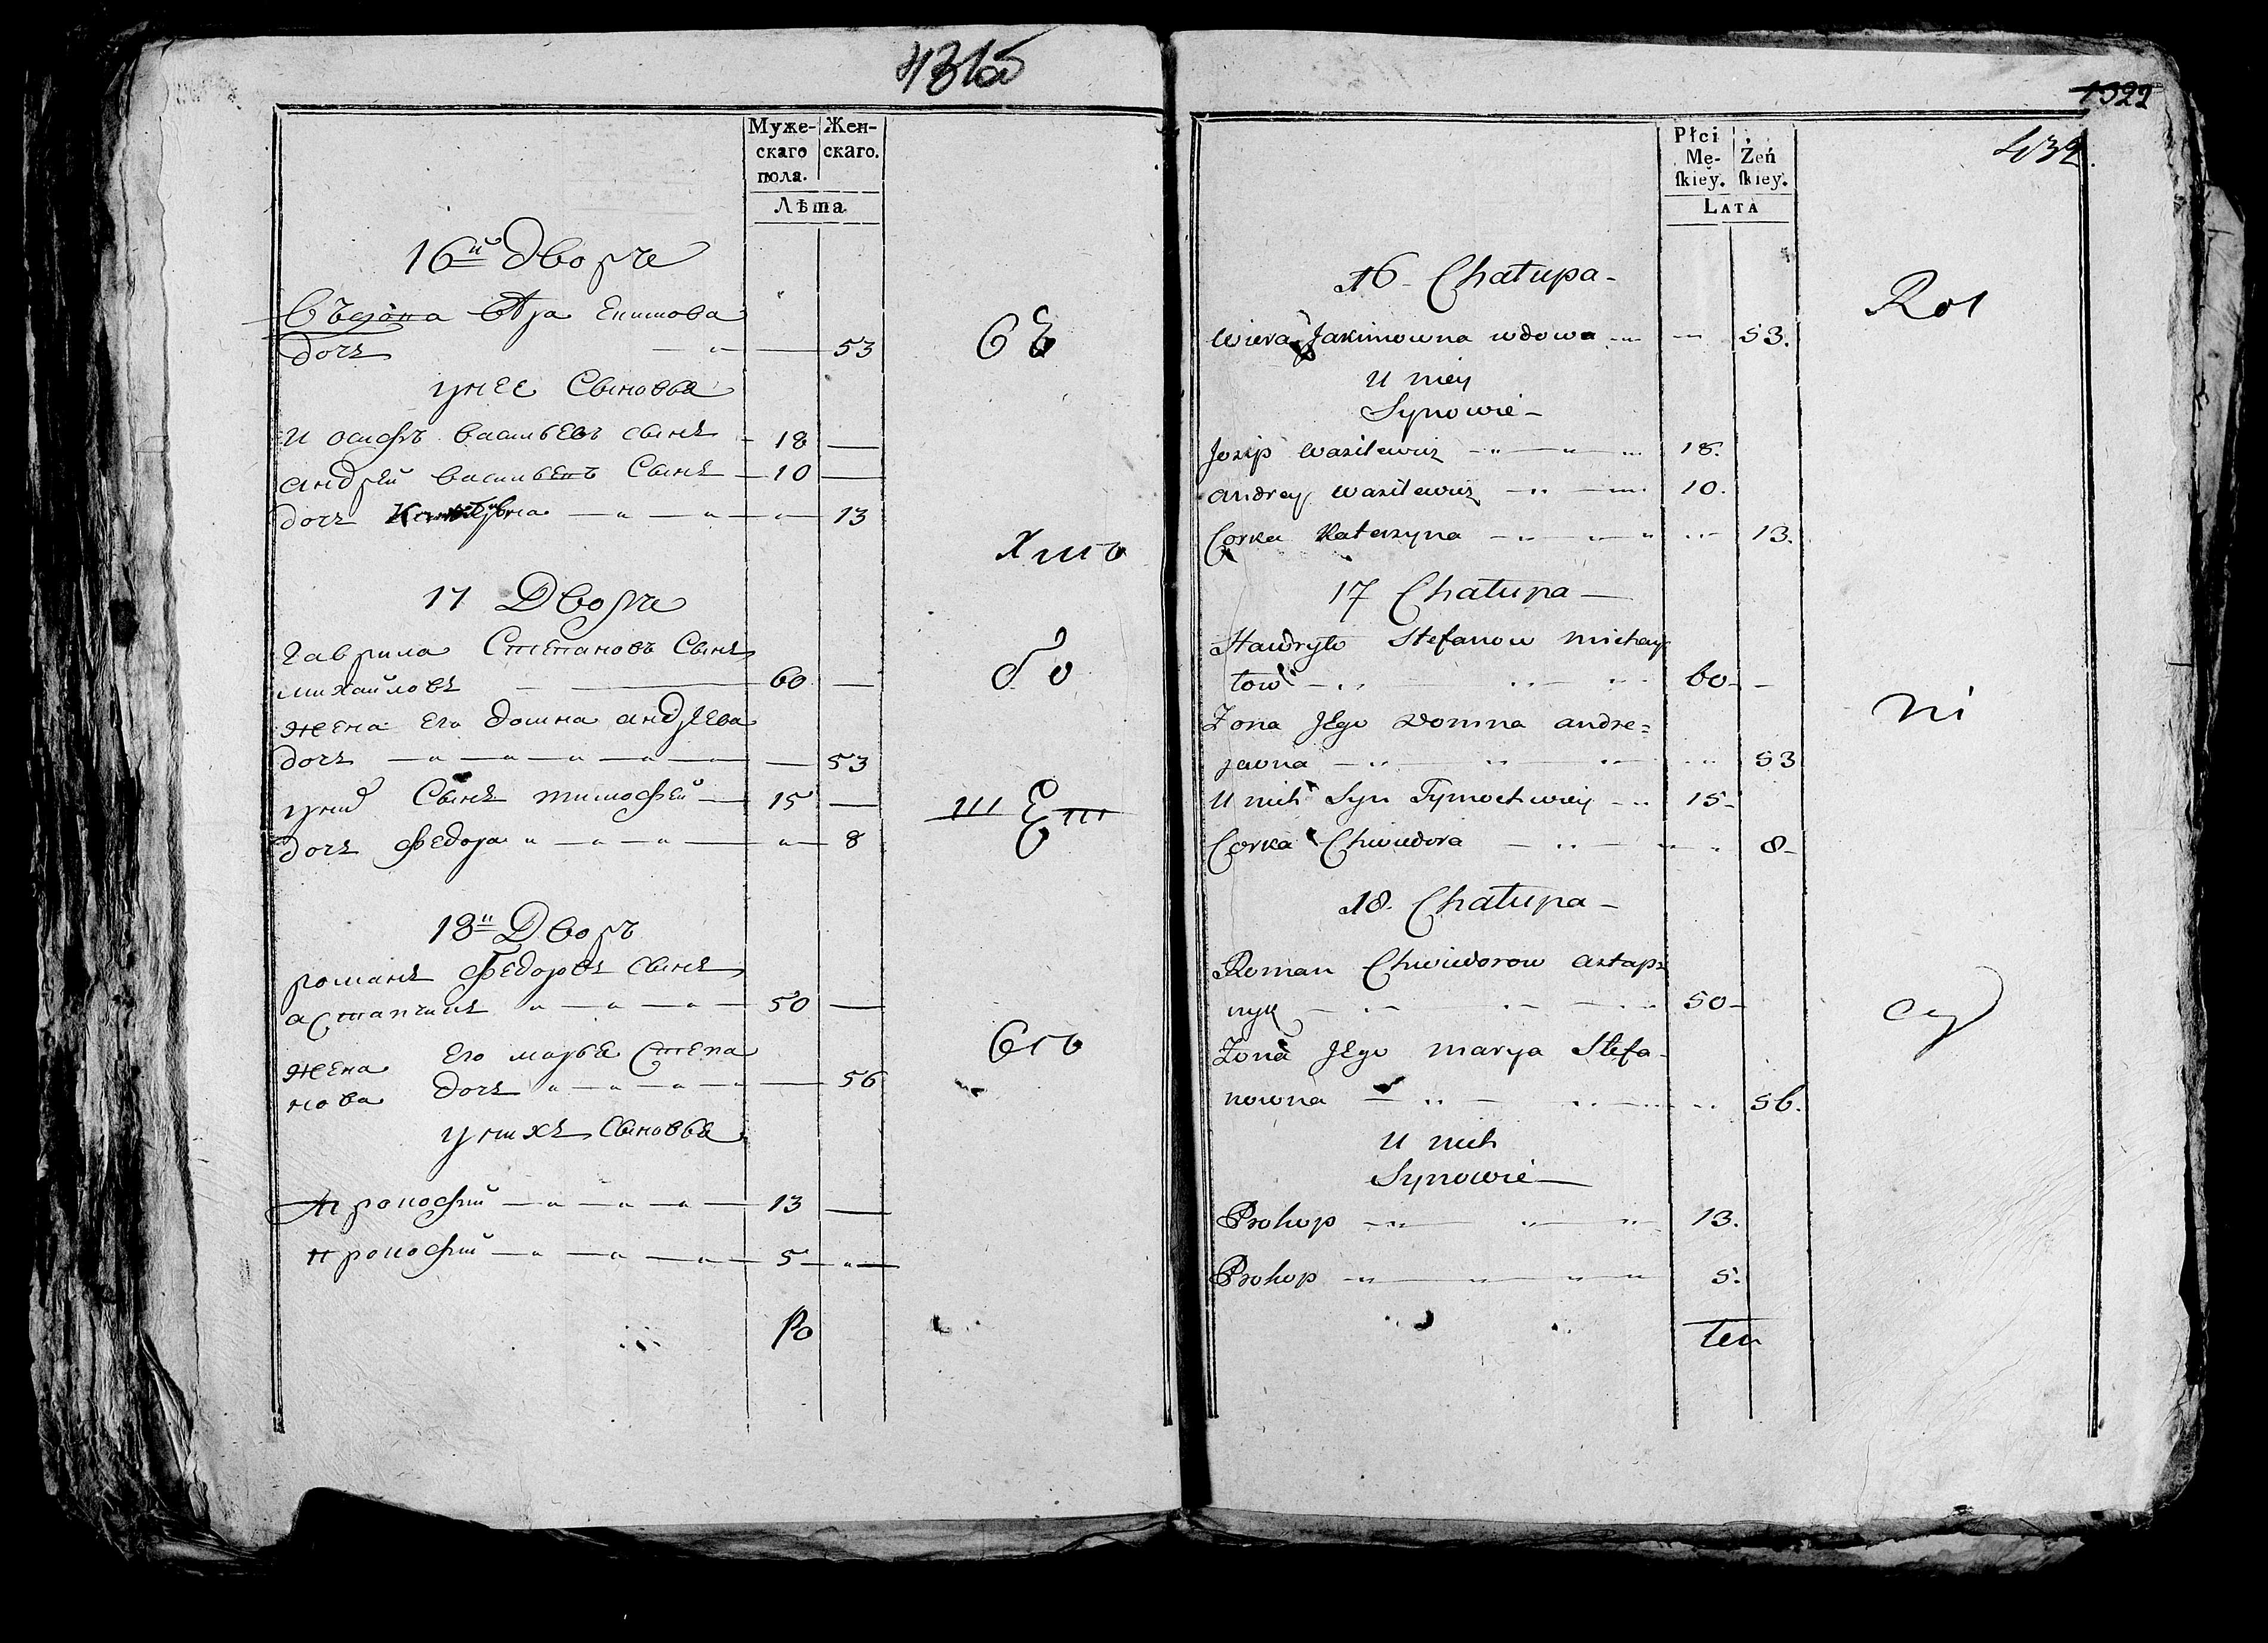 431б
Муже-
скаго
пола.
Жен-
скаго.
Лѣта
16й Дворъ
Вдова Вѣра Екимова
дочь 53
у нее Сыновья
Иосифъ Васильевъ сынъ 18
Андрей Васильевъ Сынъ 10
дочь 13
17 Дворъ
Гаврила Степановъ Сынъ
михайловъ 60
жена его домна андреева
дочь 53
у них Сынъ тимофей 15
дочь федора 8
18й Дворъ
романъ федоровъ сынъ
астапчикъ 50
жена Его марья Степа
нова дочь 56
у нихъ Сыновья
прокофий 13
прокофий 5
1022
432.
Płci
Mę-
ſkiey.
Żeń
ſkiey.
LATA
16 - Chałupa -
Wiera Jakimowna wdowa 53.
U niey
Synowie -
Jozip Wasilewicz 18.
Andrey Wasilewicz 10.
Corka Katerzyna 13.
17 Chałupa -
Hawryło Stefanow Michay
łow 60 -
Żona Jego Domna Andre=
jewna 53
U nich Syn Tymochwiey 15 -
Corka Chwiedora 8 -
18. Chałupa -
Roman Chwiedorow Astap=
nyk 50 -
Żona Jego Marya Stefa -
nowna 56.
U nich
Synowie -
Prokop 13.
Prokop 5.